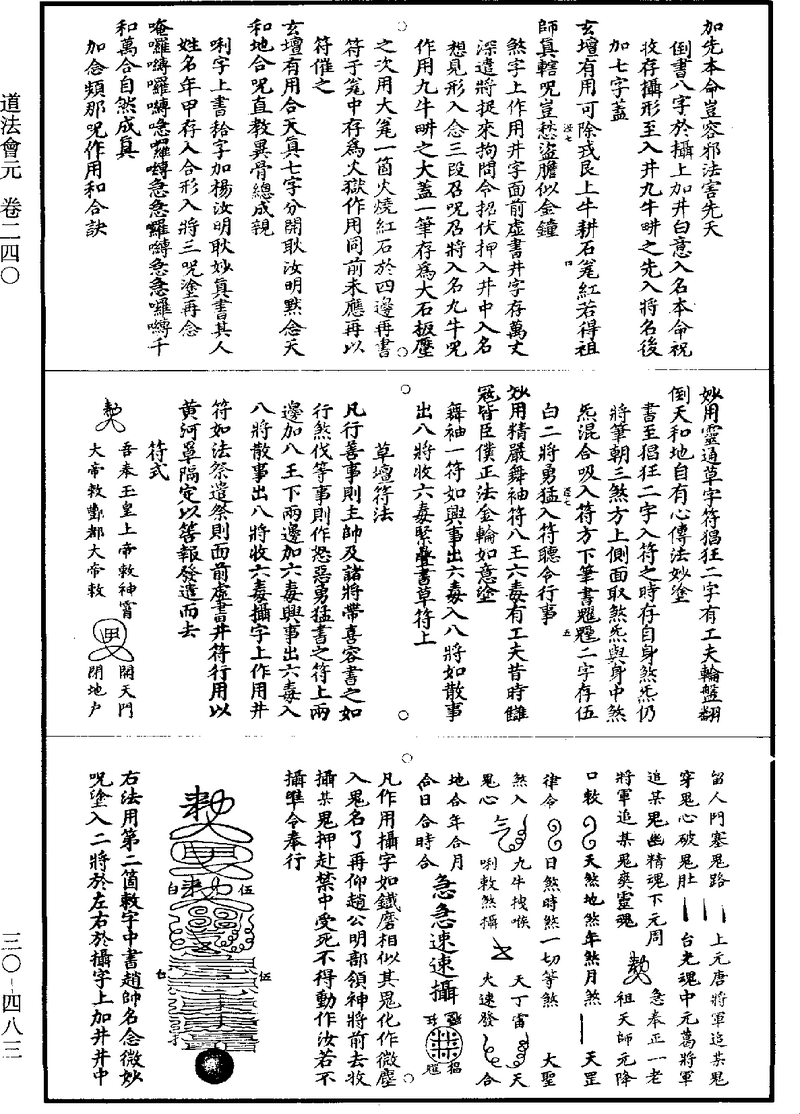 道法會元　卷二四〇
加先本命豈容邪法害先天
倒書八字於攝上加井白意入名本命祝
收存攝形至入井九牛畊之先入將名後
加七字蓋
玄壇有用可除戎艮上牛耕石笼紅若得祖
師真轄呪豈愁盜膽似金鐘
煞字上作用井字面前虛書井字存萬丈
深遣將捉來拘問令招伏押入井中入名
想見形入念三段召呪召將入名九牛呪
作用九牛畊之大蓋一筆存為大石板壓
之次用大笼一箇火燒紅石於四邊再書
符于笼中存為火獄作用同前未應再以
符催之
玄壇有用合天真七字分開耿汝明默念天
和地合呪直教異骨總成親
唎字上書給字加楊汝明耿妙真書其人
姓名年甲存入合形入將三呪塗再念
唵囉嚩囉嚩急囉嚩急急囉嚩急急囉嚩千
和萬合自然成真
加念頻那呪作用和合訣
妙用靈通草字符猖狂二字有工夫輪盤翻
倒天和地自有心傳法妙塗
書至猖狂二字入符之時存自身煞炁仍
將筆朝三煞方上側面取煞炁與身中煞
炁混合吸入符方下筆書二字存伍
白二將勇猛入符聽令行事
妙用精嚴舞袖符八王六毒有工夫昔時讎
冦皆臣僕正法金輪如意塗
舞袖一符如興事出六毒入八將如散事
出八將收六毒緊疊書草符上
草壇符法
凡行善事則主帥及諸將帶喜容書之如
行煞伐等事則作怒惡勇猛書之符上兩
邊加八王下兩邊加六毒興事出六毒入
八將散事出八將收六毒攝字上作用井
符如法祭遣祭則面前虛書井符行用以
黃河罩隔定以答報發遣而去
符式
吾奉玉皇上帝敕神霄
大帝敕酆都大帝敕
開天門
閉地户
留人門塞鬼路
上元唐將軍追某鬼
穿鬼心破鬼肚
台光魂中元葛將軍
追某鬼幽精魂下元周
急奉正一老
將軍追某鬼爽靈魂
祖天師元降
口敕
天煞地煞年煞月煞
天罡
律令
日煞時煞一切等煞
大聖
煞入
九牛拽喉
天丁雷
天
鬼心
唎敕煞攝
火速發
合
地合年合月
合日合時合
急急速速攝
招
凡作用攝字如鐵磨相似其鬼化作微塵
入鬼名了再仰趙公明部領神將前去收
攝某鬼押赴禁中受死不得動作汝若不
攝準令奉行
白
伍
右法用第二箇敕字中書趙帥名念微妙
呪塗入二將於左右於攝字上加井井中
三〇-四八三